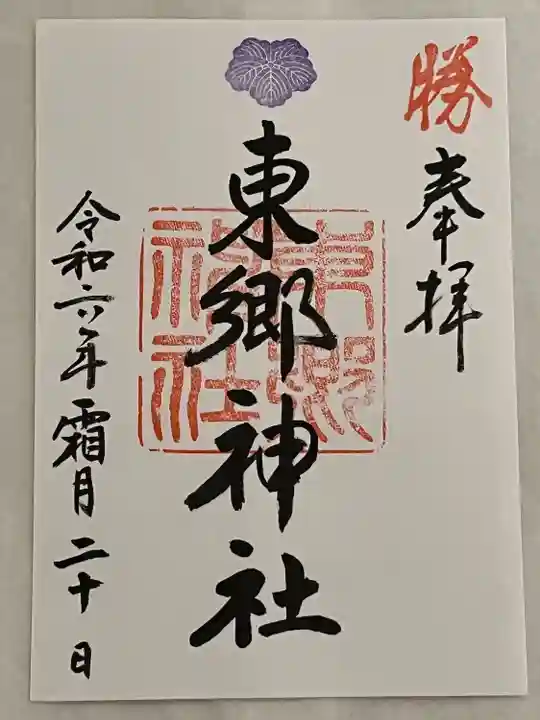 勝
奉拝
東郷神社
東郷神社
令和六年霜月二十日